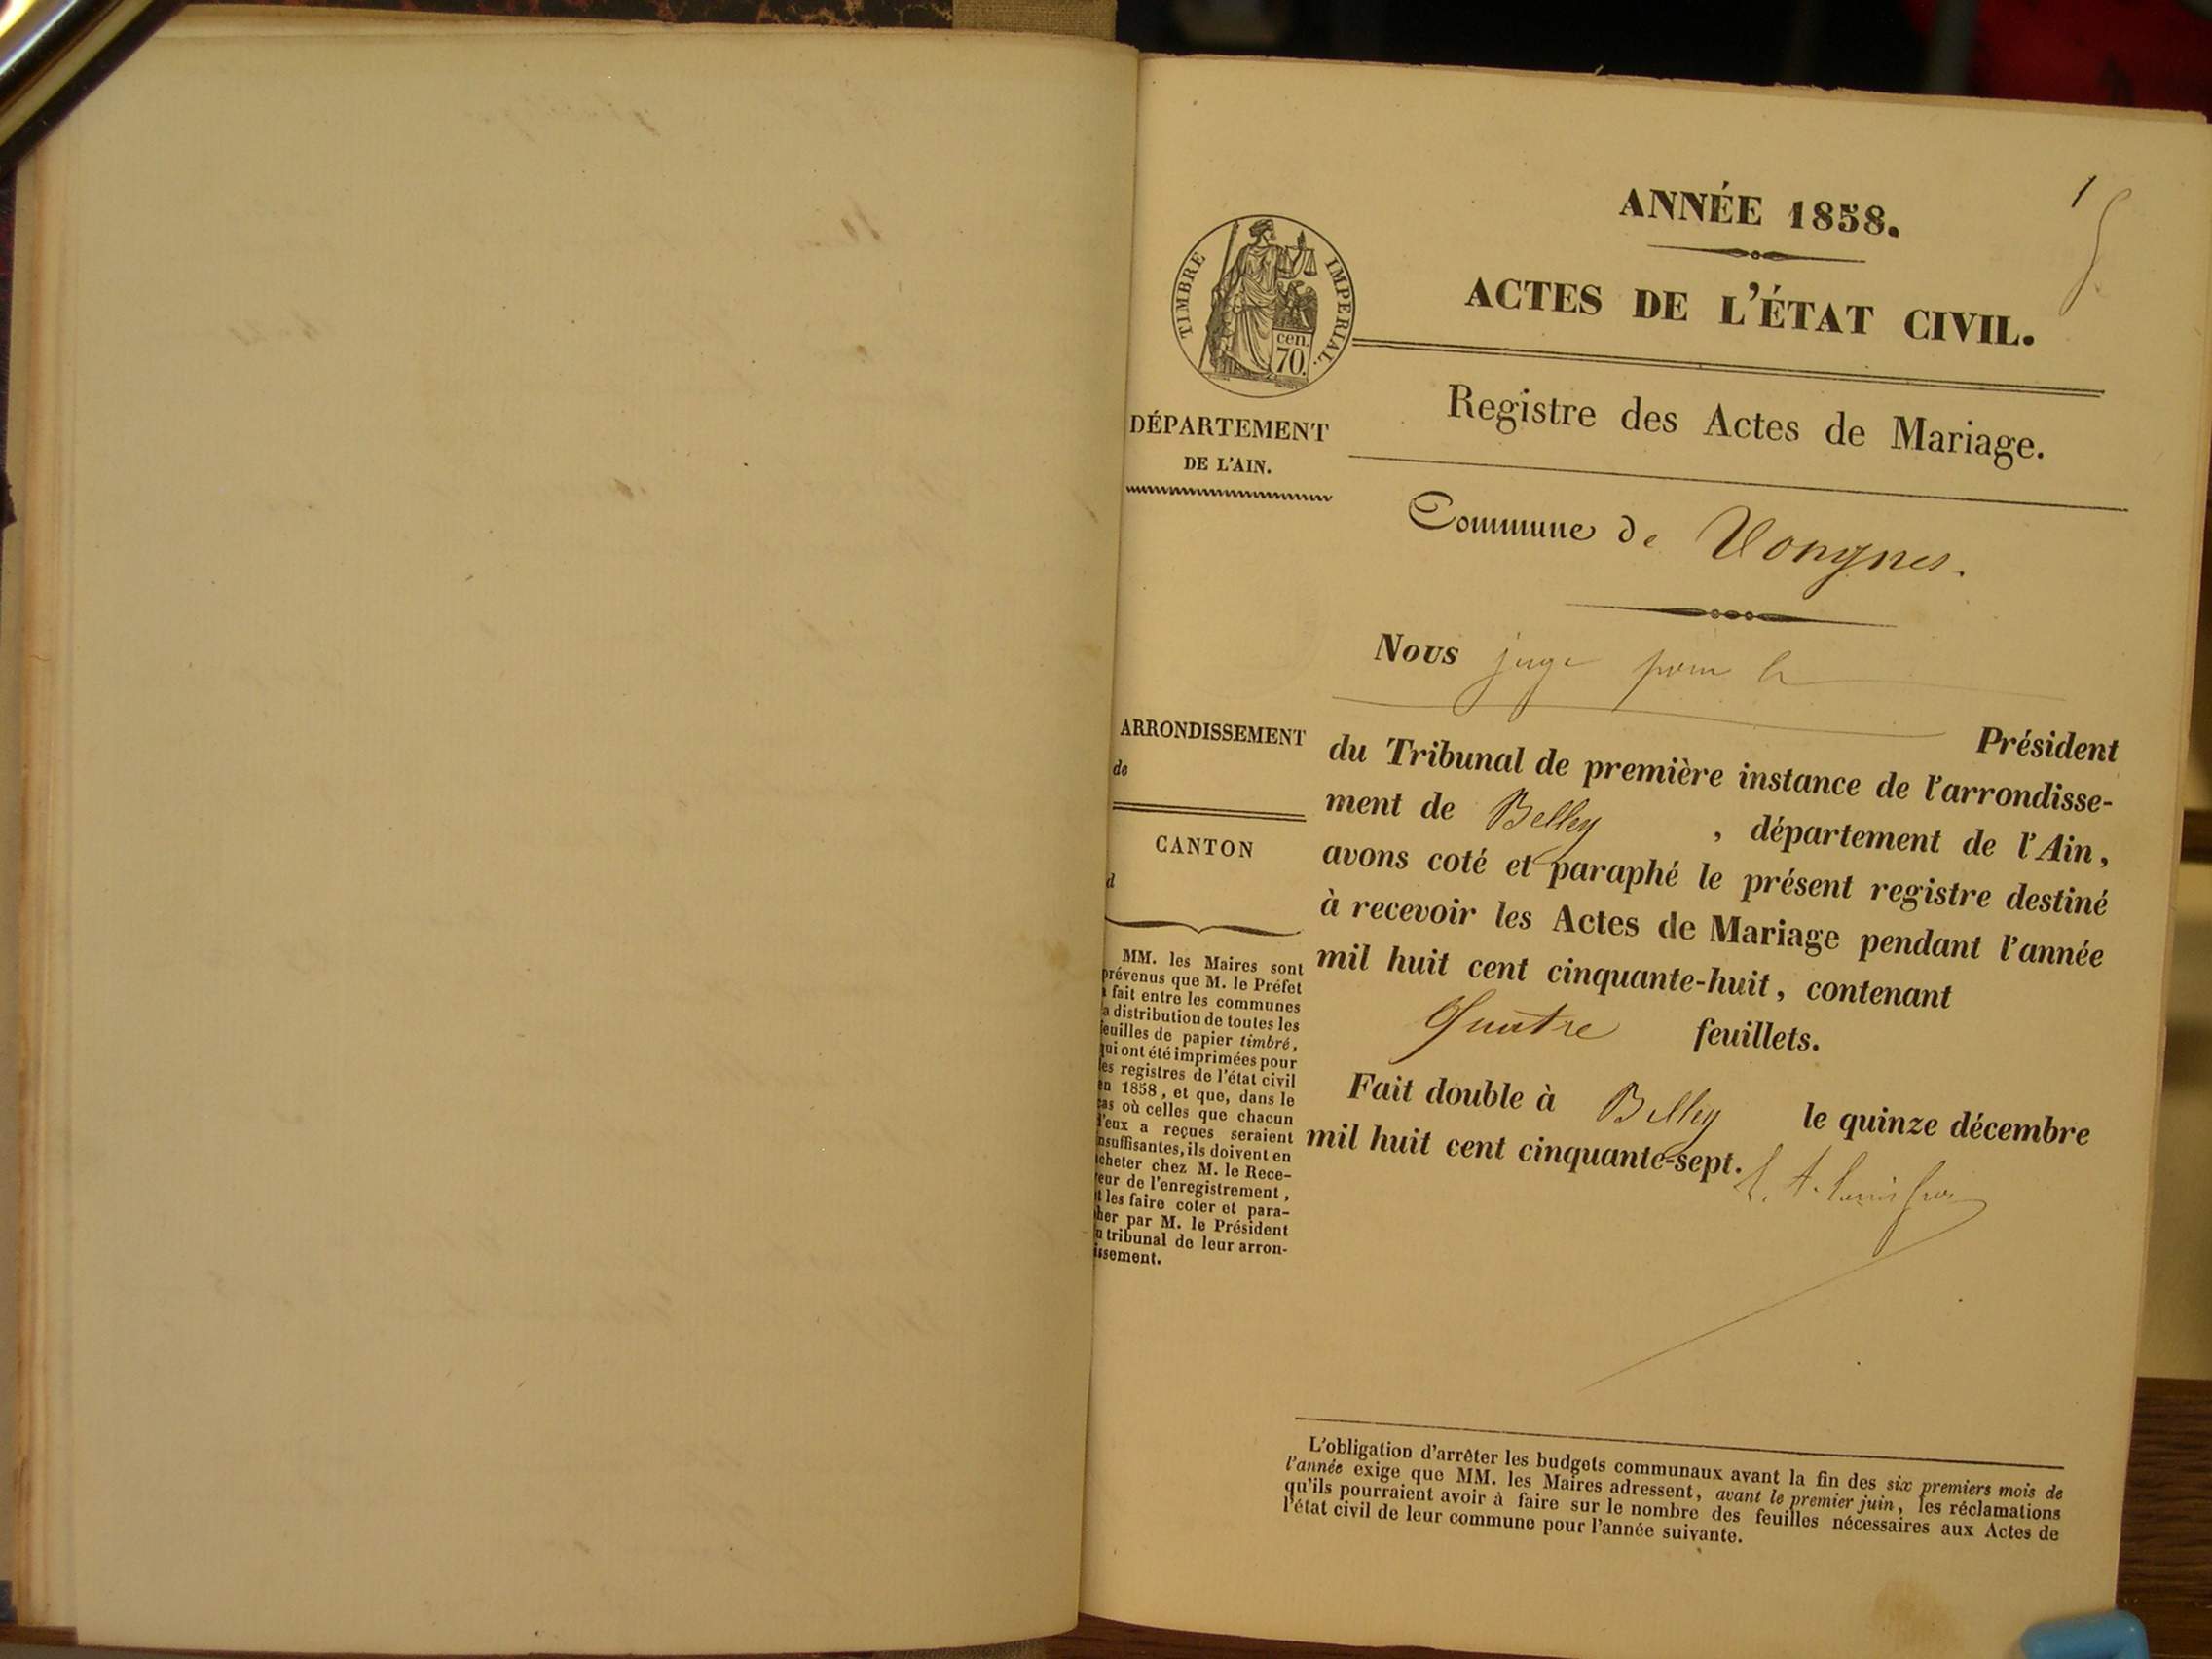 ANNÉE 1858.
1
ACTES DE L'ÉTAT CIVIL.
TIMBRE IMPERIAL.
cen.
70.
Registre des Actes de Mariage.
DÉPARTEMENT
DE L'AIN.
Commune de Vongnes.
Nous juge pour le
Président
du Tribunal de première instance de l'arrondisse-
ment de Belley , département de l'Ain,
avons coté et paraphé le présent registre destiné
à recevoir les Actes de Mariage pendant l'année
mil huit cent cinquante-huit, contenant
Quatre feuillets.
Fait double à Belley le quinze décembre
mil huit cent cinquante-sept.
ARRONDISSEMENT
de
CANTON
d
MM. les Maires sont
prévenus que M. le Préfet
a fait entre les communes
la distribution de toutes les
feuilles de papier timbré,
qui ont été imprimées pour
les registres de l'état civil
en 1858, et que, dans le
cas où celles que chacun
d'eux a reçues seraient
insuffisantes, ils doivent en
acheter chez M. le Rece-
veur de l'enregistrement,
et les faire coter et para-
pher par M. le Président
du tribunal de leur arron-
dissement.
L'obligation d'arrêter les budgets communaux avant la fin des six premiers mois de
l'année exige que MM. les Maires adressent, avant le premier juin, les réclamations
qu'ils pourraient avoir à faire sur le nombre des feuilles nécessaires aux Actes de
l'état civil de leur commune pour l'année suivante.